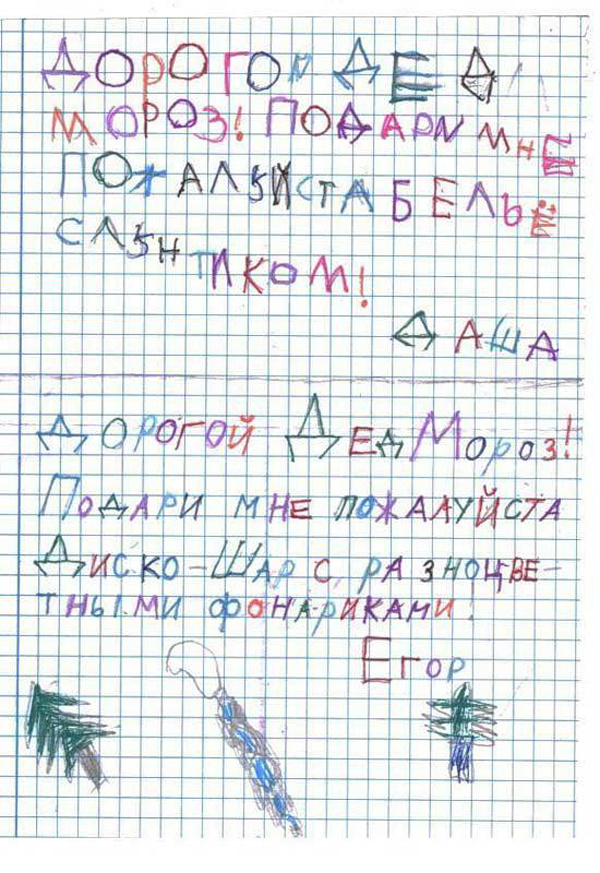 ДОРОГОЙ ДЕД
МОРОЗ! ПОДАРИ МНЕ
ПОЖАЛУЙСТА БЕЛЬЁ
СЛУНТИКОМ!
ДАША
ДОРОГОЙ ДЕД МОРОЗ!
ПОДАРИ МНЕ ПОЖАЛУЙСТА
ДИСКО-ШАР С РАЗНОЦВЕ-
ТНЫМИ ФОНАРИКАМИ!
ЕГОР